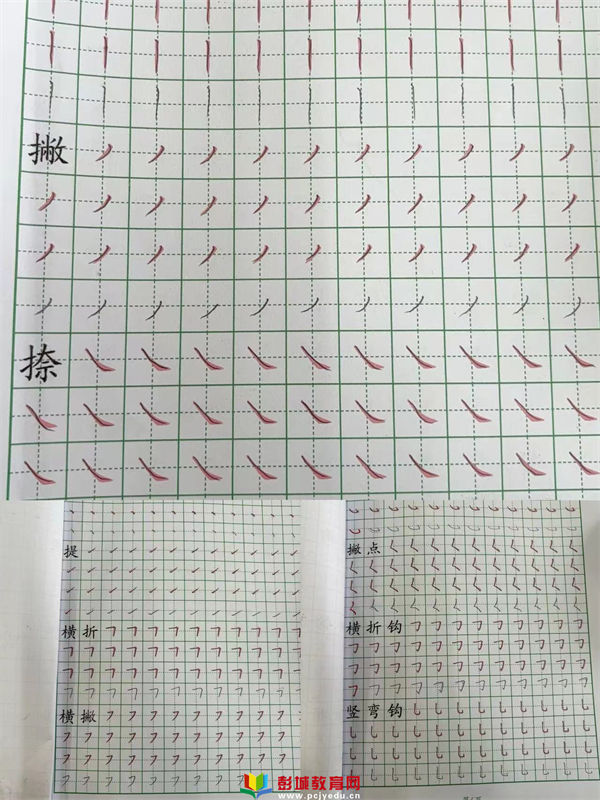 撇
捺
提
横折
横撇
撇点
横折钩
竖弯钩
彭城教育网
www.pcjyedu.cn